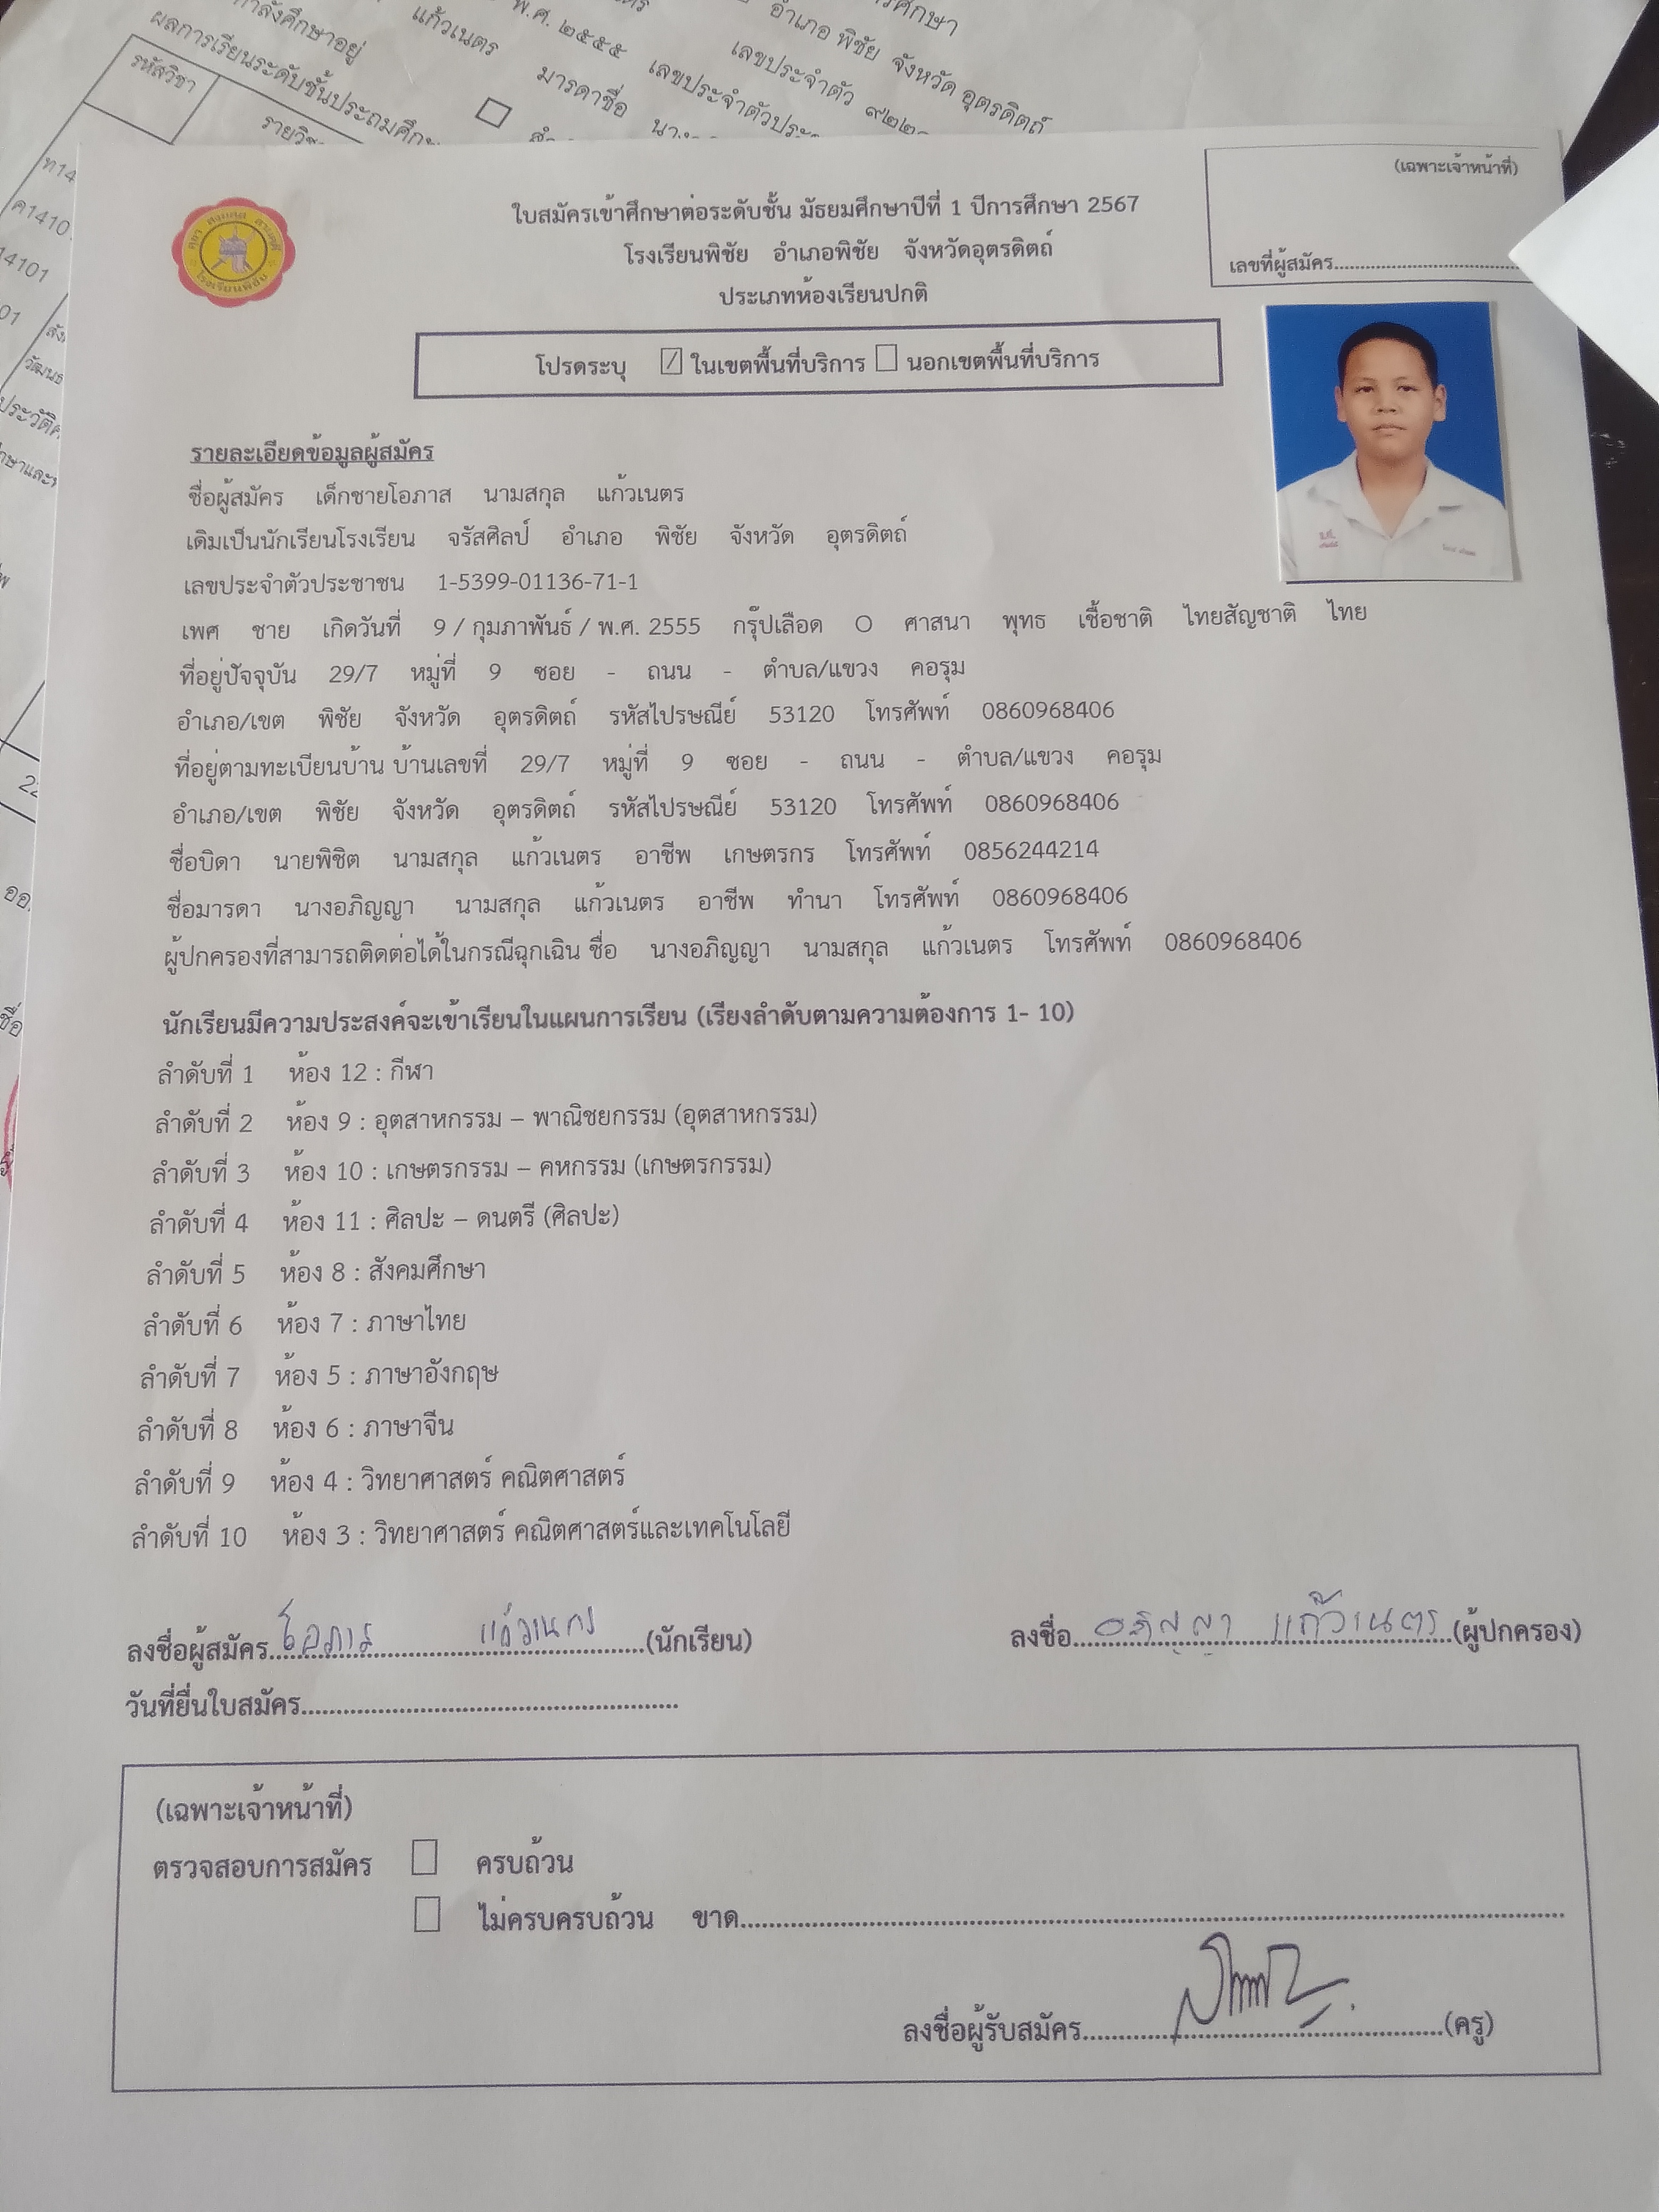 กำลังศึกษาอยู่
แก้วเนตร
พ.ศ. ๒๕๕๕
เลขประจำตัวประ
อำเภอ พิชัย จังหวัด อุตรดิตถ์
เลขประจำตัว ๙๒๒
มารดาชื่อ
ผลการเรียนระดับชั้นประถมศึก
รหัสวิชา
(เฉพาะเจ้าหน้าที่)
เลขที่ผู้สมัคร
ใบสมัครเข้าศึกษาต่อระดับชั้น มัธยมศึกษาปีที่ 1 ปีการศึกษา 2567
โรงเรียนพิชัย อำเภอพิชัย จังหวัดอุตรดิตถ์
ประเภทห้องเรียนปกติ
โปรดระบุ ☑ ในเขตพื้นที่บริการ ☐ นอกเขตพื้นที่บริการ
รายละเอียดข้อมูลผู้สมัคร
ชื่อผู้สมัคร เด็กชายโอภาส นามสกุล แก้วเนตร
เดิมเป็นนักเรียนโรงเรียน จรัสศิลป์ อำเภอ พิชัย จังหวัด อุตรดิตถ์
เลขประจำตัวประชาชน 1-5399-01136-71-1
เพศ ชาย เกิดวันที่ 9 / กุมภาพันธ์ / พ.ศ. 2555 กรุ๊ปเลือด O ศาสนา พุทธ เชื้อชาติ ไทยสัญชาติ ไทย
ที่อยู่ปัจจุบัน 29/7 หมู่ที่ 9 ซอย - ถนน - ตำบล/แขวง คอรุม
อำเภอ/เขต พิชัย จังหวัด อุตรดิตถ์ รหัสไปรษณีย์ 53120 โทรศัพท์ 0860968406
ที่อยู่ตามทะเบียนบ้าน บ้านเลขที่ 29/7 หมู่ที่ 9 ซอย - ถนน - ตำบล/แขวง คอรุม
อำเภอ/เขต พิชัย จังหวัด อุตรดิตถ์ รหัสไปรษณีย์ 53120 โทรศัพท์ 0860968406
ชื่อบิดา นายพิชิต นามสกุล แก้วเนตร อาชีพ เกษตรกร โทรศัพท์ 0856244214
ชื่อมารดา นางอภิญญา นามสกุล แก้วเนตร อาชีพ ทำนา โทรศัพท์ 0860968406
ผู้ปกครองที่สามารถติดต่อได้ในกรณีฉุกเฉิน ชื่อ นางอภิญญา นามสกุล แก้วเนตร โทรศัพท์ 0860968406
นักเรียนมีความประสงค์จะเข้าเรียนในแผนการเรียน (เรียงลำดับตามความต้องการ 1- 10)
ลำดับที่ 1 ห้อง 12 : กีฬา
ลำดับที่ 2 ห้อง 9 : อุตสาหกรรม – พาณิชยกรรม (อุตสาหกรรม)
ลำดับที่ 3 ห้อง 10 : เกษตรกรรม – คหกรรม (เกษตรกรรม)
ลำดับที่ 4 ห้อง 11 : ศิลปะ – ดนตรี (ศิลปะ)
ลำดับที่ 5 ห้อง 8 : สังคมศึกษา
ลำดับที่ 6 ห้อง 7 : ภาษาไทย
ลำดับที่ 7 ห้อง 5 : ภาษาอังกฤษ
ลำดับที่ 8 ห้อง 6 : ภาษาจีน
ลำดับที่ 9 ห้อง 4 : วิทยาศาสตร์ คณิตศาสตร์
ลำดับที่ 10 ห้อง 3 : วิทยาศาสตร์ คณิตศาสตร์และเทคโนโลยี
ลงชื่อผู้สมัคร โอภาส แก้วเนตร (นักเรียน) ลงชื่อ อภิญญา แก้วเนตร (ผู้ปกครอง)
วันที่ยื่นใบสมัคร
(เฉพาะเจ้าหน้าที่)
ตรวจสอบการสมัคร ☐ ครบถ้วน
☐ ไม่ครบครบถ้วน ขาด
ลงชื่อผู้รับสมัคร (ครู)